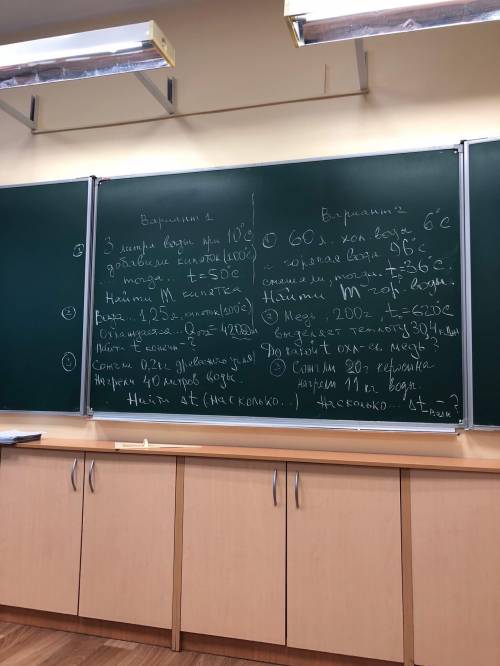 Вариант 1
① 3 литра воды при 10°С
добавили кипяток (100°С)
... тогда... t=50°С
Найти m кипятка
② Вода... 1,25 л, кипяток (100°С)
охлаждается...
Найти t конечн-?
③ Сожгли 0,2 кг древесного угля
Нагрели 40 литров воды.
Найти Δt (насколько...)
Вариант 2
① 60 л. хол вода 6°С
и горячая вода 96°С
смешали, тогда. t=36°С.
Найти m гор воды.
② Медь, 200г, t₁=620°С
выделяет теплоту
До какой t охл-ся медь?
③ Сожгли 20г керосина
нагрели 11 кг воды.
Насколько... Δt воды-?